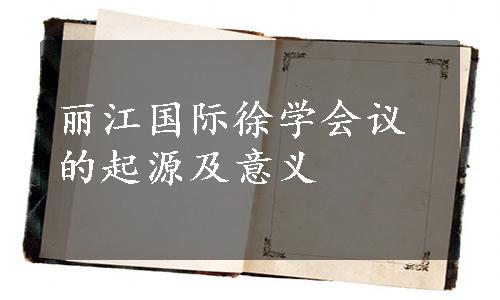 丽江国际徐学会议
的起源及意义